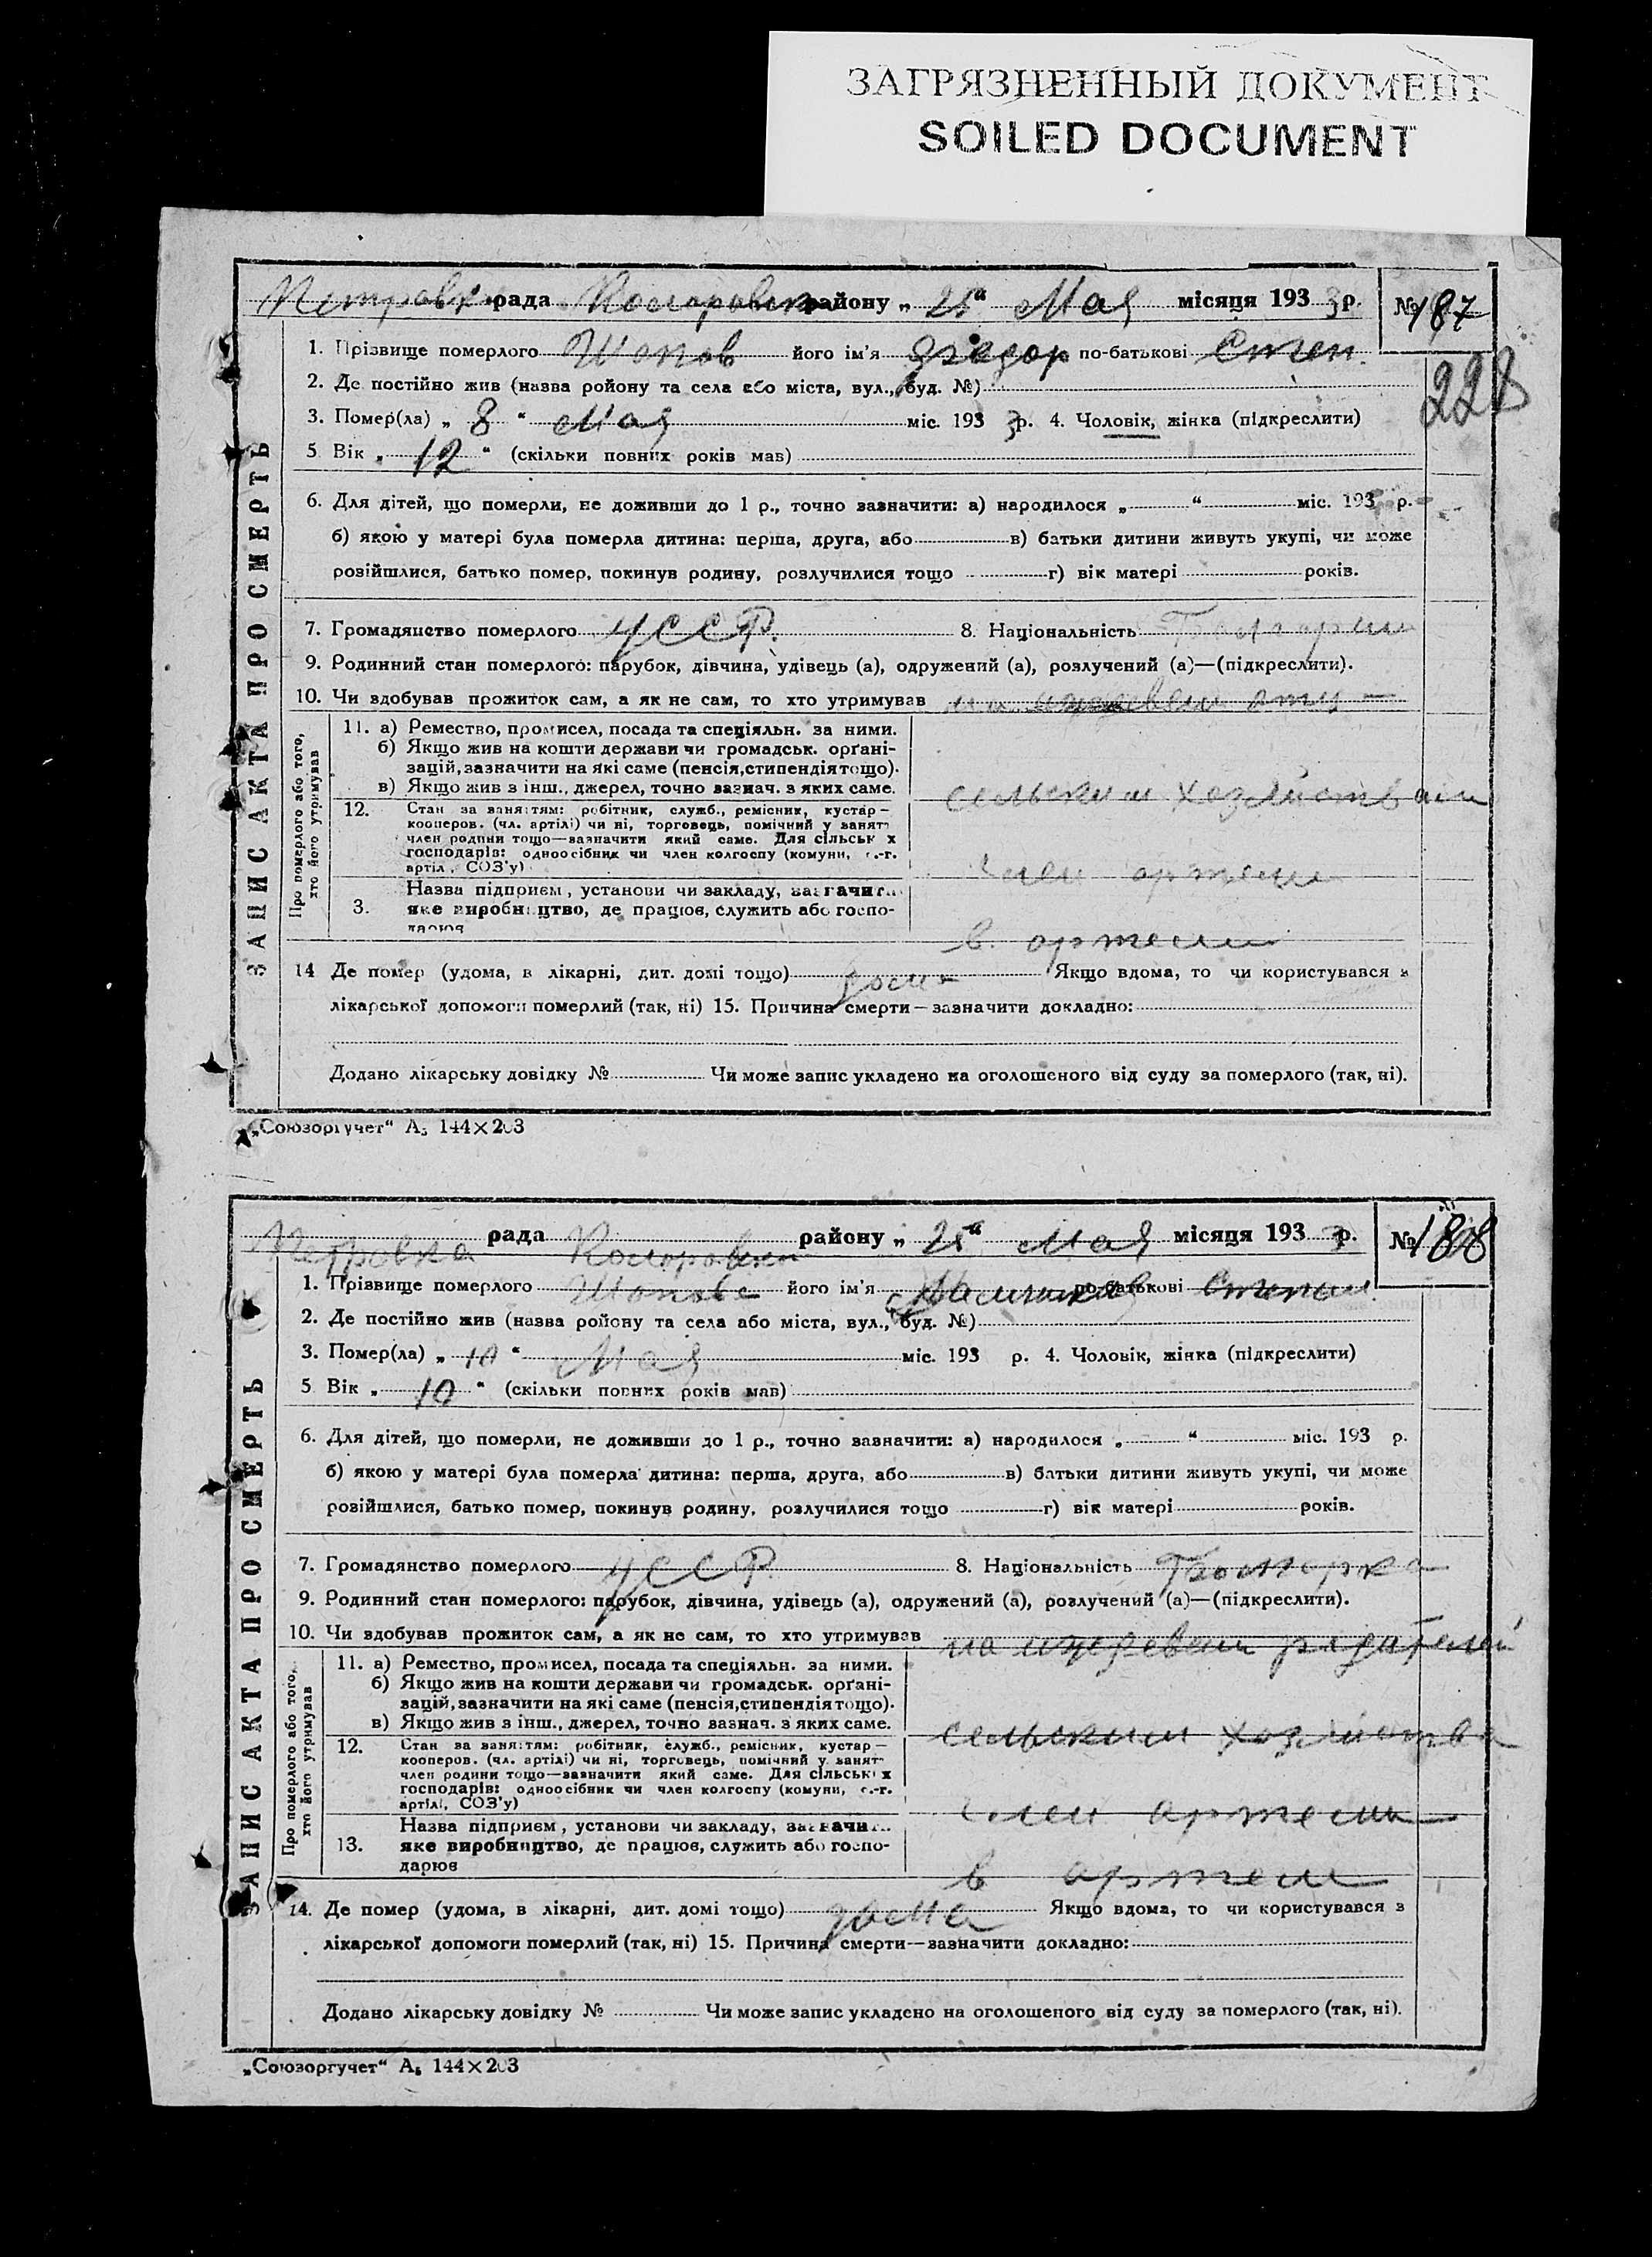 ЗАГРЯЗНЕННЫЙ ДОКУМЕНТ
SOILED DOCUMENT
рада району „ 25 “ Мая місяця 193 3 р. № 187
228
ЗАПИС АКТА ПРО СМЕРТЬ
1. Прізвище померлого Шопов його ім’я Федор по-батькові Степ
2. Де постійно жив (назва ройону та села або міста, вул., буд. №)
3. Помер(ла) „ 8 “ Мая міс. 193 3 р. 4. Чоловік, жінка (підкреслити)
5 Вік „ 12 “ (скільки повних років мав)
6. Для дітей, що померли, не доживши до 1 р., точно зазначити: а) народилося „ “ міс. 193 р.
б) якою у матері була померла дитина: перша, друга, або в) батьки дитини живуть укупі, чи може
розійшлися, батько помер, покинув родину, розлучилися тощо г) вік матері років.
7. Громадянство померлого УССР. 8. Національність
9. Родинний стан померлого: парубок, дівчина, удівець (а), одружений (а), розлучений (а)—(підкреслити).
10. Чи здобував прожиток сам, а як не сам, то хто утримував
Про померлого або того,
хто його утримував
11. а) Ремество, промисел, посада та спеціяльн. за ними.
б) Якщо жив на кошти держави чи громадськ. орґані-
зацій, зазначити на які саме (пенсія, стипендія тощо).
в) Якщо жив з інш., джерел, точно зазнач. з яких саме.
сельским хозяйством
12. Стан за заняттям: робітник, служб., ремісник, кустар—
кооперов. (чл. артілі) чи ні, торговець, помічний у занятт
член родини тощо—зазначити який саме. Для сільськ х
господарів: одноосібник чи член колгоспу (комуни, с.-г.
артіл , СОЗ’у)
член артели
3. Назва підприєм , установи чи закладу, зазначити
яке виробництво, де працюв, служить або госпо-
дарюв
в артели
14 Де помер (удома, в лікарні, дит. домі тощо) дома Якщо вдома, то чи користувався з
лікарської допомоги померлий (так, ні) 15. Причина смерти—зазначити докладно:
Додано лікарську довідку № Чи може запис укладено на оголошеного від суду за померлого (так, ні).
„Союзоргучет“ А5 144×203
Петровка рада району „ 25 “ Мая місяця 193 3 р. № 188
ЗАПИС АКТА ПРО СМЕРТЬ
1. Прізвище померлого Шопова його ім’я по-батькові Степан
2. Де постійно жив (назва ройону та села або міста, вул., буд. №)
3. Помер(ла) „ 10 “ Мая міс. 193 р. 4. Чоловік, жінка (підкреслити)
5 Вік „ 10 “ (скільки повних років мав)
6. Для дітей, що померли, не доживши до 1 р., точно зазначити: а) народилося „ “ міс. 193 р.
б) якою у матері була померла дитина: перша, друга, або в) батьки дитини живуть укупі, чи може
розійшлися, батько помер, покинув родину, розлучилися тощо г) вік матері років.
7. Громадянство померлого УССР 8. Національність Болгарка
9. Родинний стан померлого: парубок, дівчина, удівець (а), одружений (а), розлучений (а)—(підкреслити).
10. Чи здобував прожиток сам, а як не сам, то хто утримував на иждевени родителей
Про померлого або того,
хто його утримував
11. а) Ремество, промисел, посада та спеціяльн. за ними.
б) Якщо жив на кошти держави чи громадськ. орґані-
зацій, зазначити на які саме (пенсія, стипендія тощо).
в) Якщо жив з інш., джерел, точно зазнач. з яких саме.
сельским хозяйства
12. Стан за заняттям: робітник, служб., ремісник, кустар—
кооперов. (чл. артілі) чи ні, торговець, помічний у занятт
член родини тощо—зазначити який саме. Для сільських
господарів: одноосібник чи член колгоспу (комуни, с.-г.
артілі, СОЗ’у)
член артели
13. Назва підприєм , установи чи закладу, зазначи
яке виробництво, де працюв, служить або госпо-
дарюв
в артели
14. Де помер (удома, в лікарні, дит. домі тощо) дома Якщо вдома, то чи користувався з
лікарської допомоги померлий (так, ні) 15. Причина смерти—зазначити докладно:
Додано лікарську довідку № Чи може запис укладено на оголошеного від суду за померлого (так, ні).
„Союзоргучет“ А5 144×203